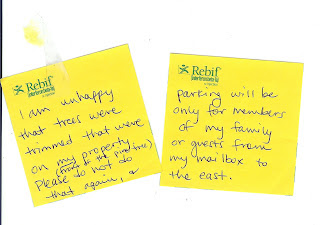 Rebif
I am unhappy
that trees were
trimmed that were
on my property
(front of the pine tree)
Please to not do
that again, or
Rebif
parking will be
only for members
of my family
or guests from
my mailbox to
the east.